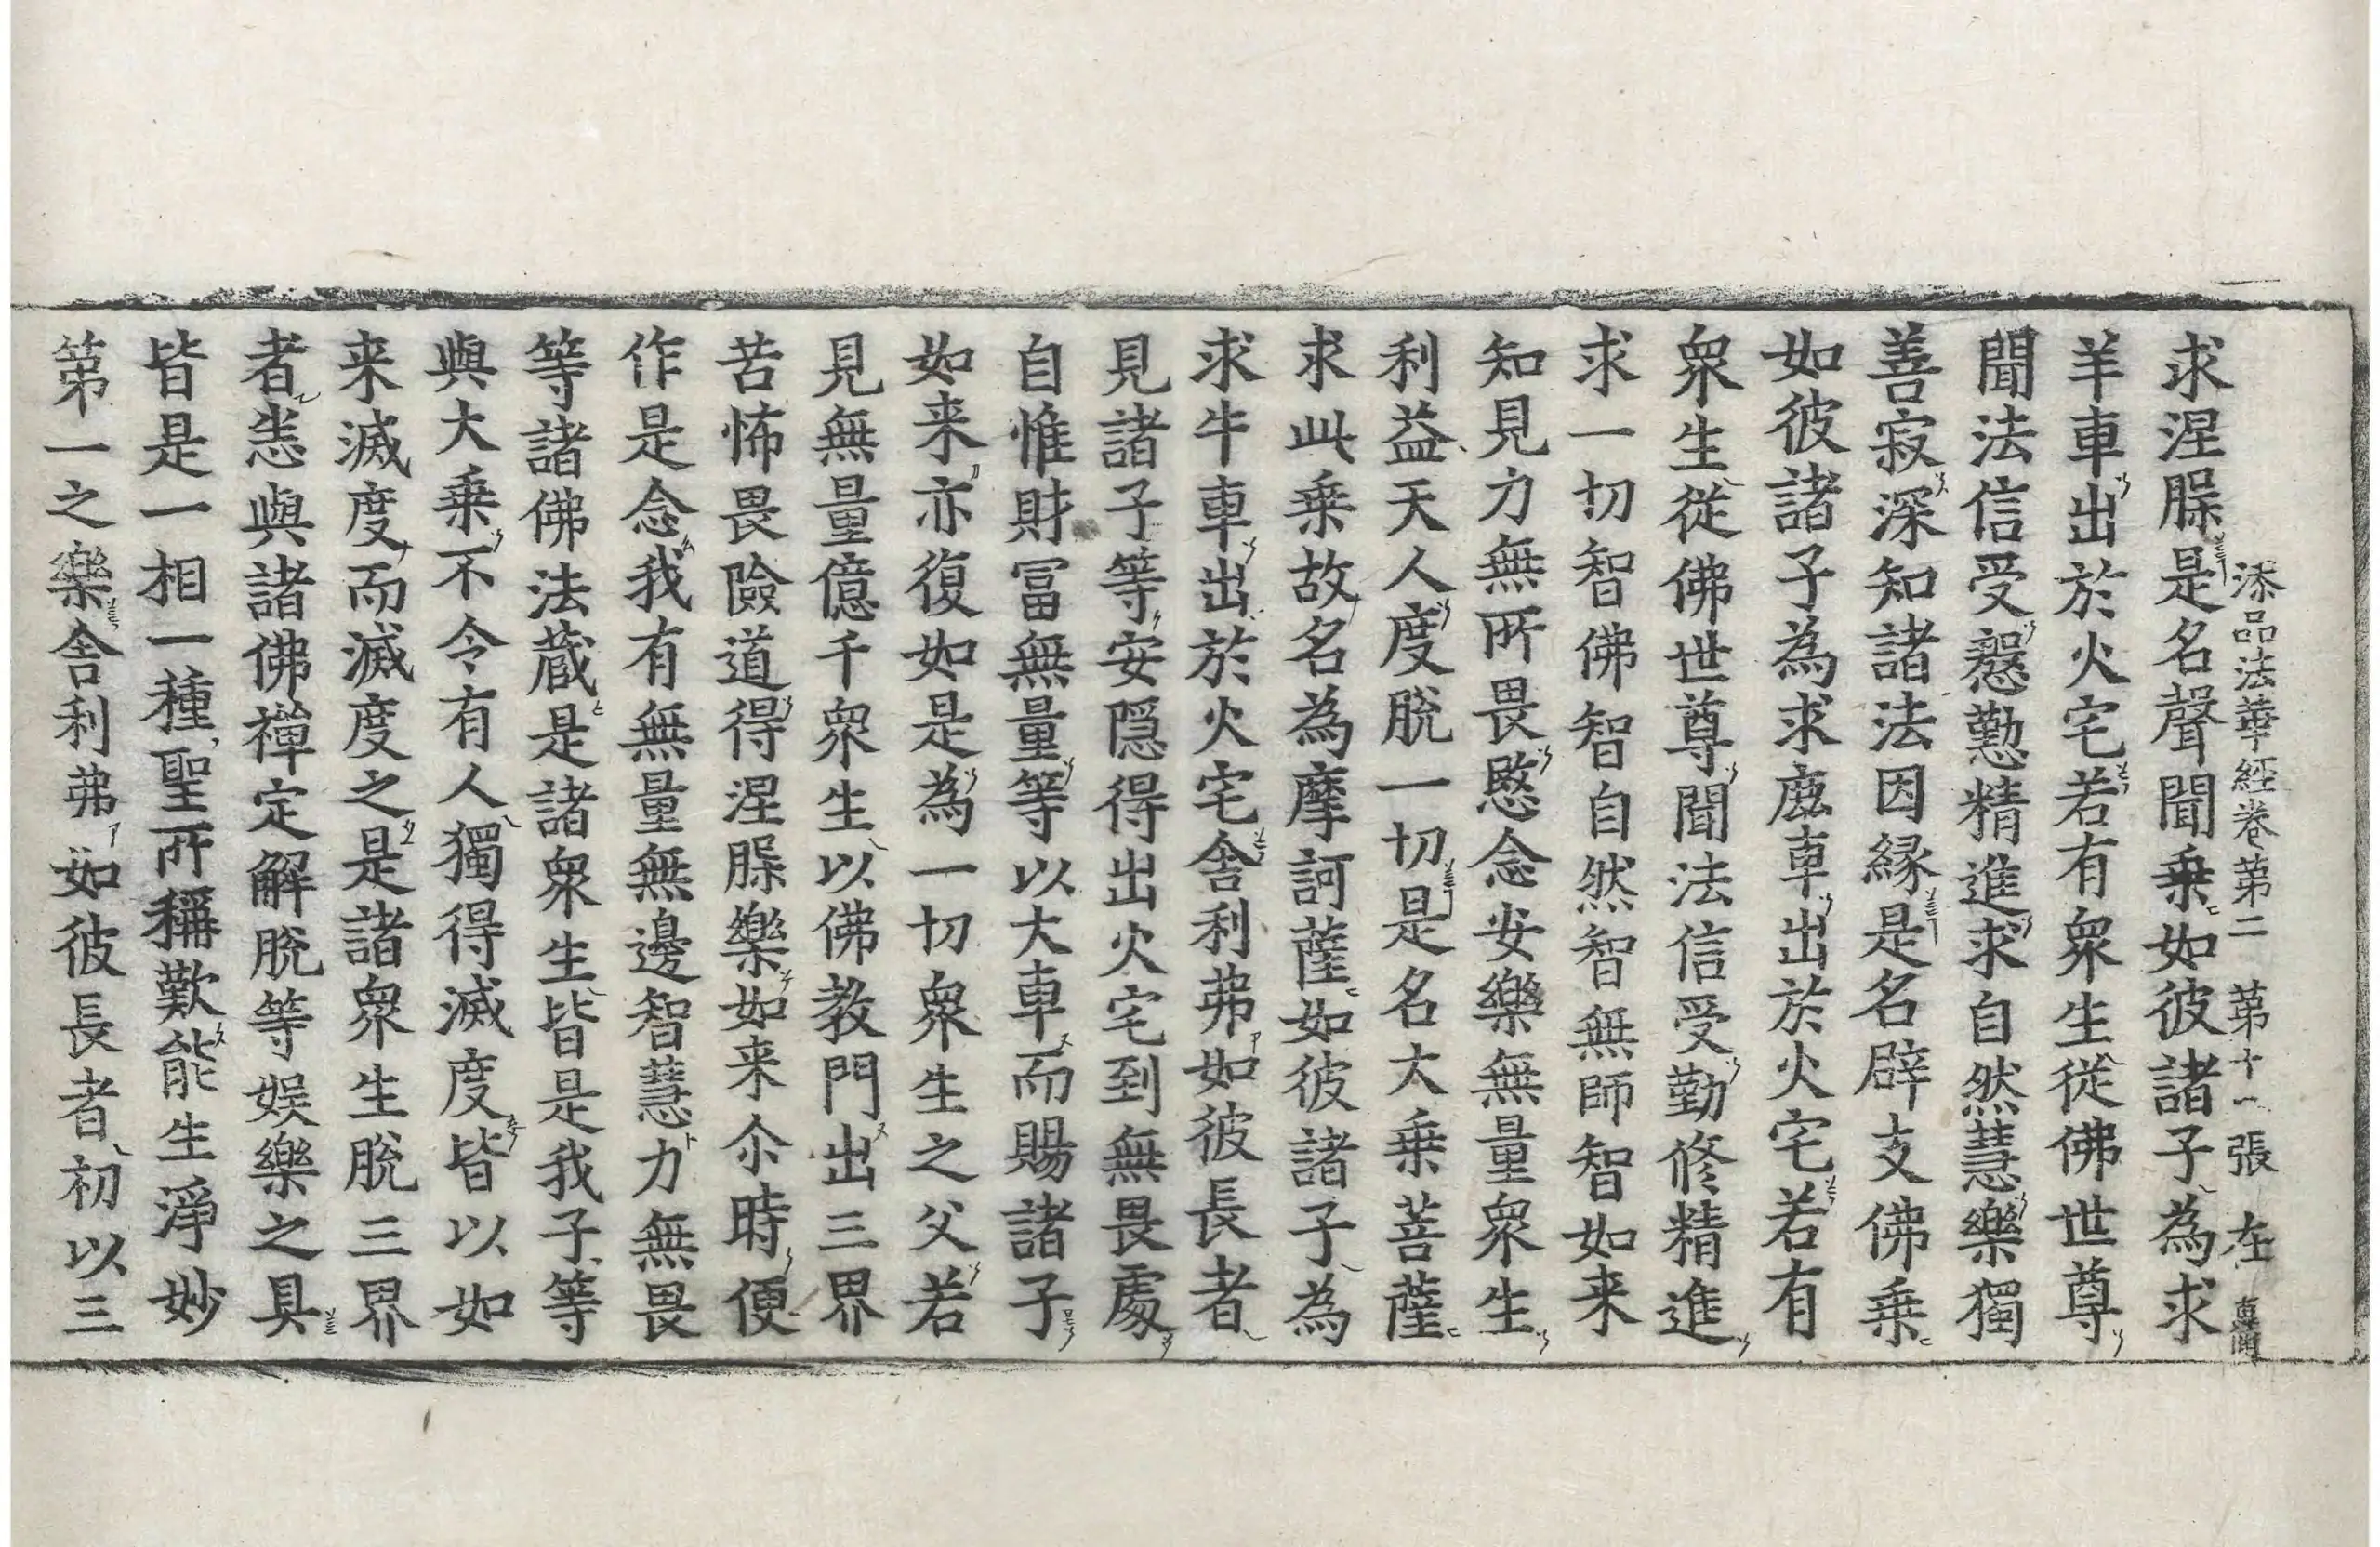 添品法華經卷第二 第十一張 在
求涅脲是名聲聞乗如彼諸子為求
羊車出於火宅若有衆生従佛世尊
聞法信受慇懃精進求自然慧樂獨
善寂深知諸法因縁是名辟支佛乗
如彼諸子為求鹿車出於火宅若有
衆生従佛世尊聞法信受勤修精進
求一切智佛智自然智無師智如来
知見力無所畏愍念安樂無量衆生
利益天人度脱一切是名大乗菩薩
求此乗故名為摩訶薩如彼諸子為
求牛車出於火宅舎利弗如彼長者
見諸子等安隠得出火宅到無畏處
自惟財冨無量等以大車而賜諸子
如来亦復如是為一切衆生之父若
見無量億千衆生以佛教門出三界
苦怖畏險道得涅脲樂如来尒時便
作是念我有無量無邊智慧力無畏
等諸佛法蔵是諸衆生皆是我子等
與大乗不令有人獨得滅度皆以如
来滅度而滅度之是諸衆生脱三界
者悉與諸佛禅定解脱等娱樂之具
皆是一相一種聖所稱歎能生淨妙
第一之樂舎利弗如彼長者初以三